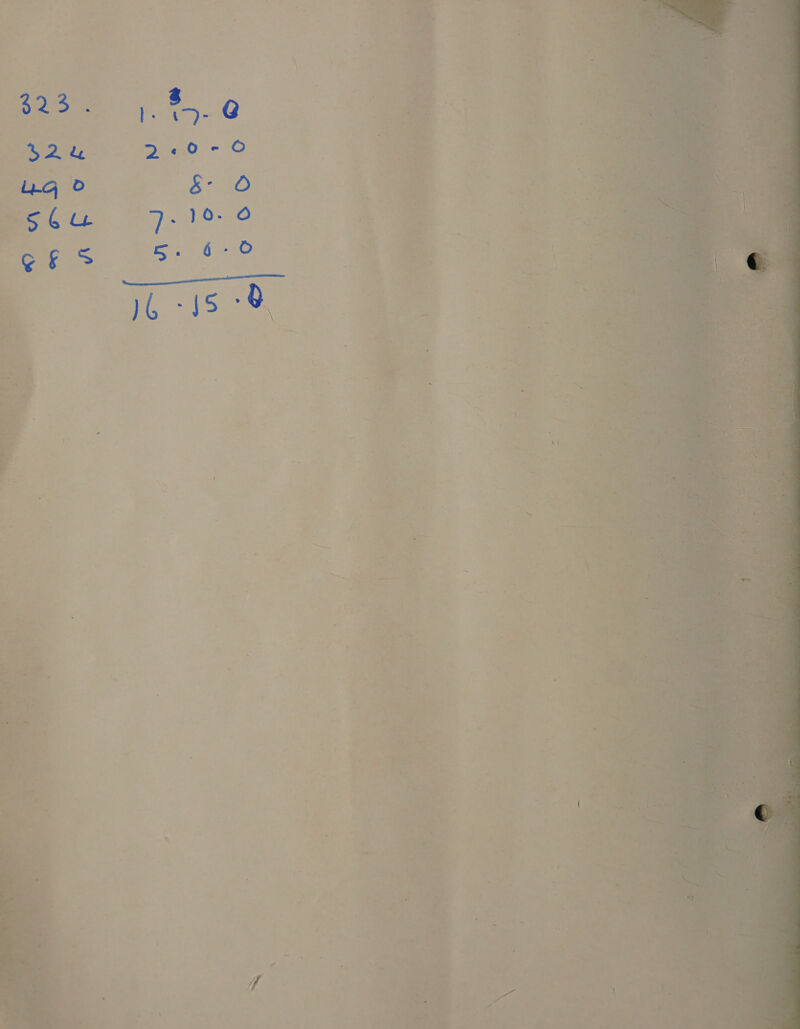 323. 1. 17. 0
324 2.0-0
490 8. 0
564 7.10.0
885 5. 6.0
16.15.0